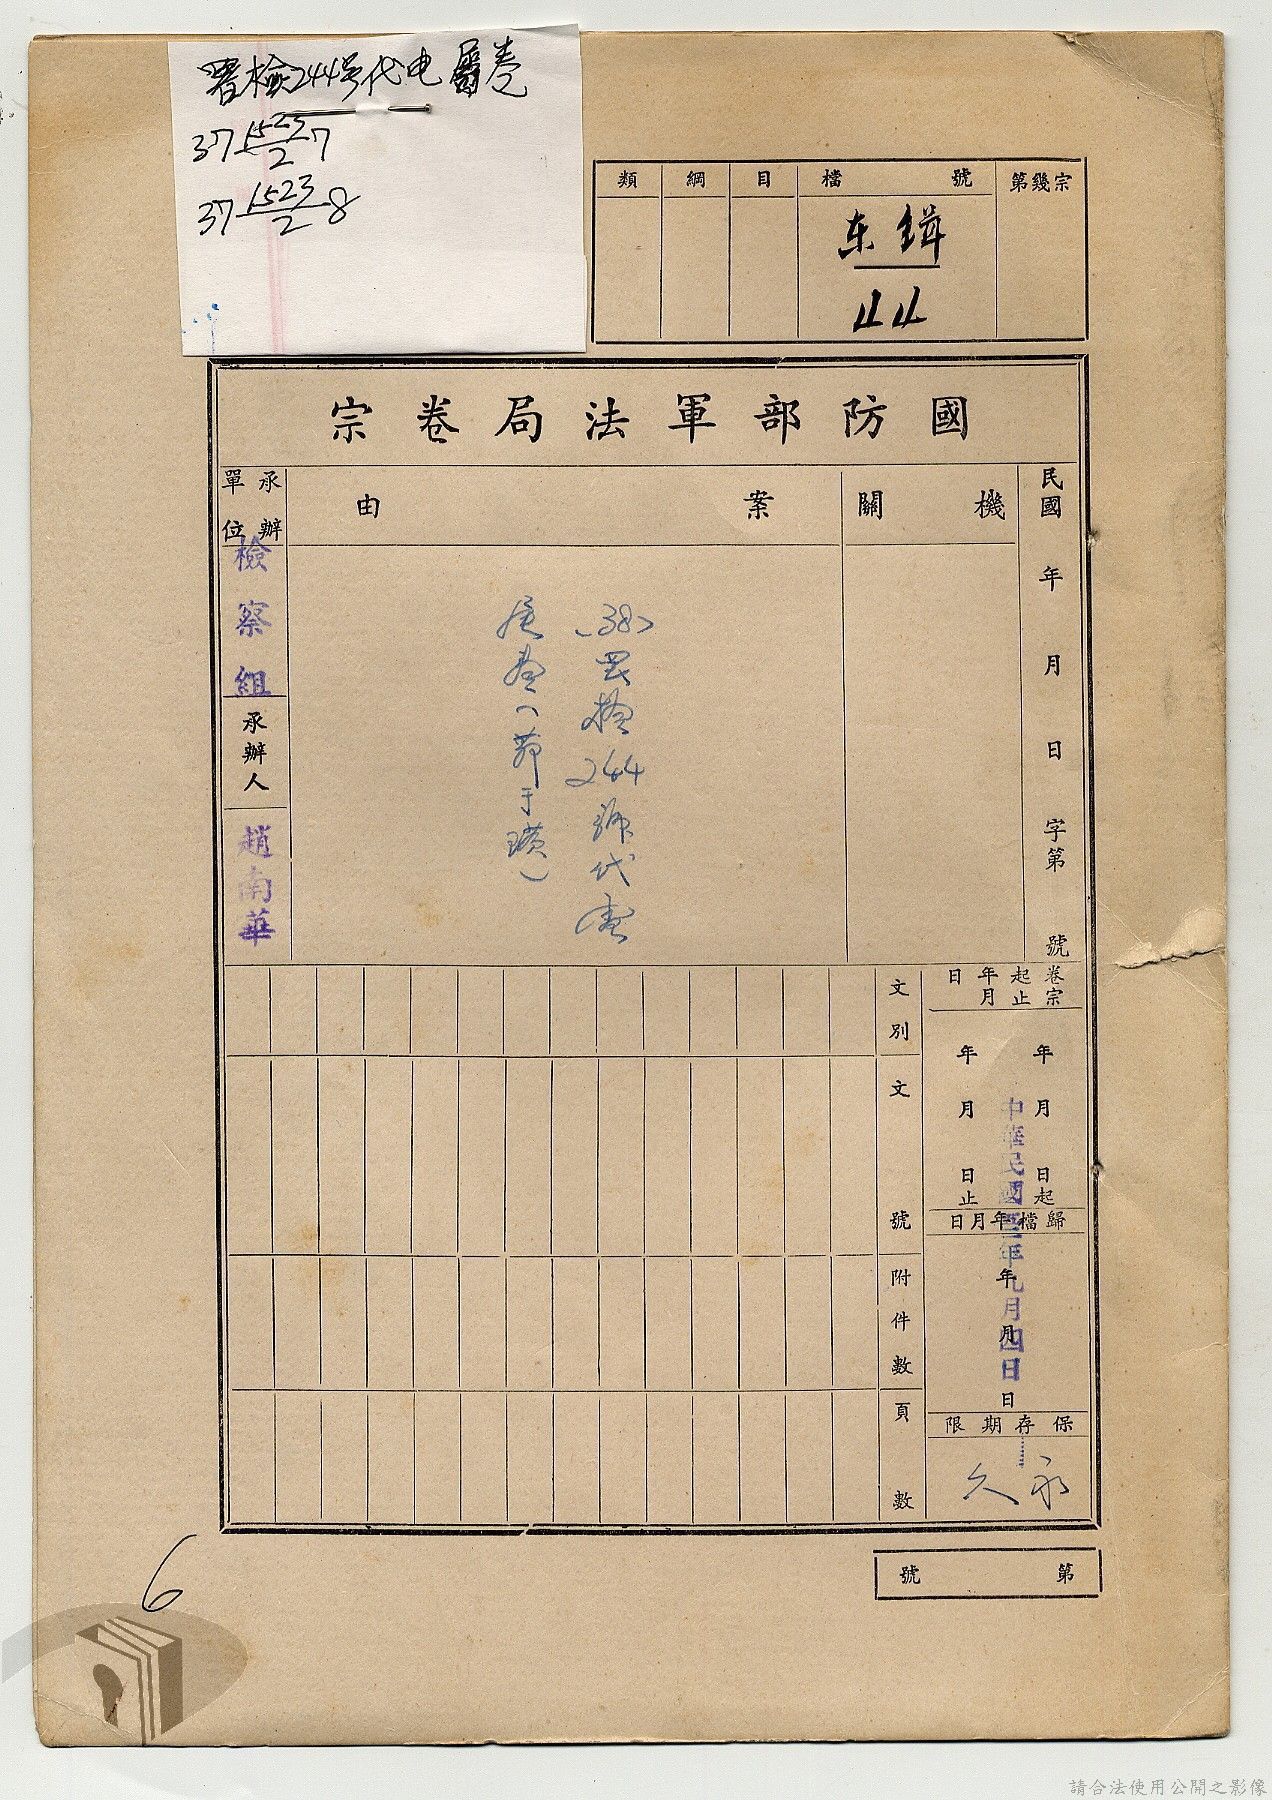 署檢244号代电屬卷
37 1523/2 7
37 1523/2 8
類 綱 目 檔號 第幾宗
东緝
44
國防部軍法局卷宗
民國 年 月 日 字第 號
機關
案由
(38)
244號代電
承辦單位
檢察組
承辦人
趙南華
卷宗起止年月日
年 月 日起
年 月 日止
歸檔年月日
年 月 日
保存期限
永久
文別
文號
附件數
頁數
第 號
6
請合法使用公開之影像